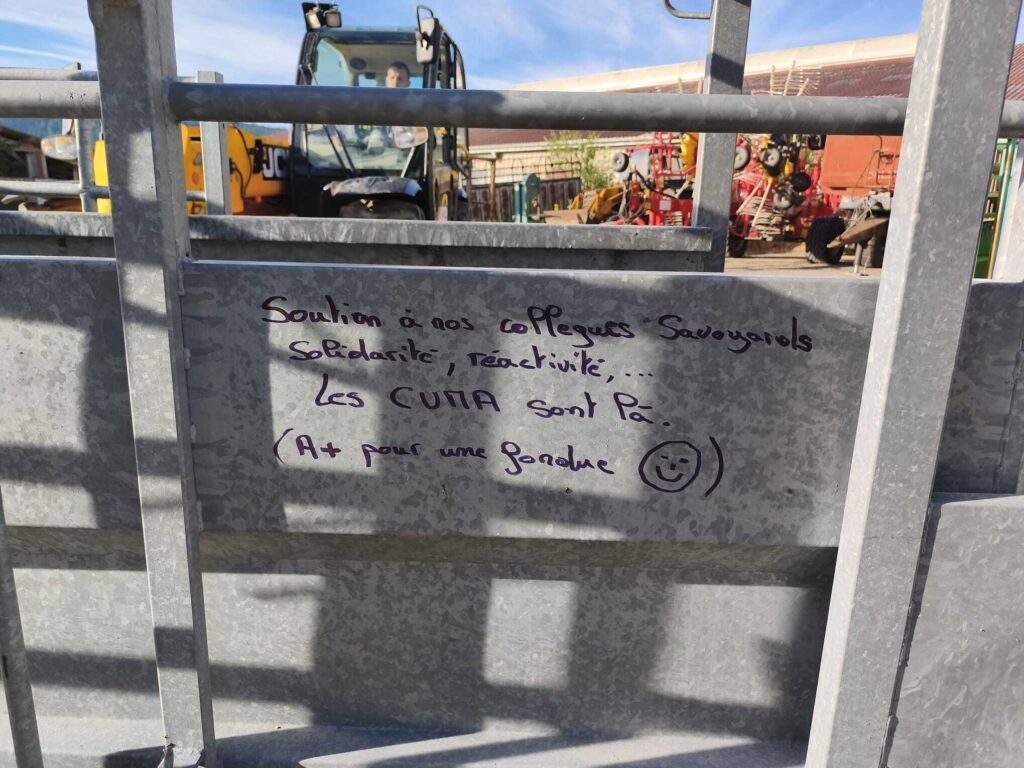 JCB
Soutien à nos collegues Savoyards
Solidarité, réactivité, ...
Les CUMA sont là.
(A+ pour une fondue )